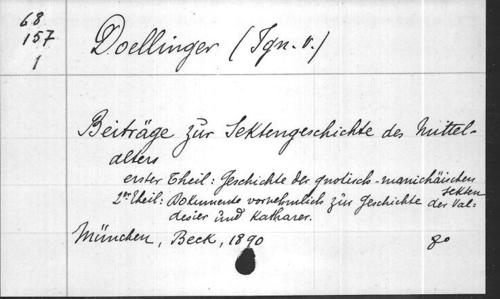 68
157
1
Doellinger (Ign. v.)
Beiträge zur Sektengeschichte des Mittel-
alters
erster Theil: Geschichte der gnotisch-manichäischen
Sekten
2ter Theil: Dokumente vornehmlich zur Geschichte der Val-
desier und Katharer.
München, Beck, 1890
8o